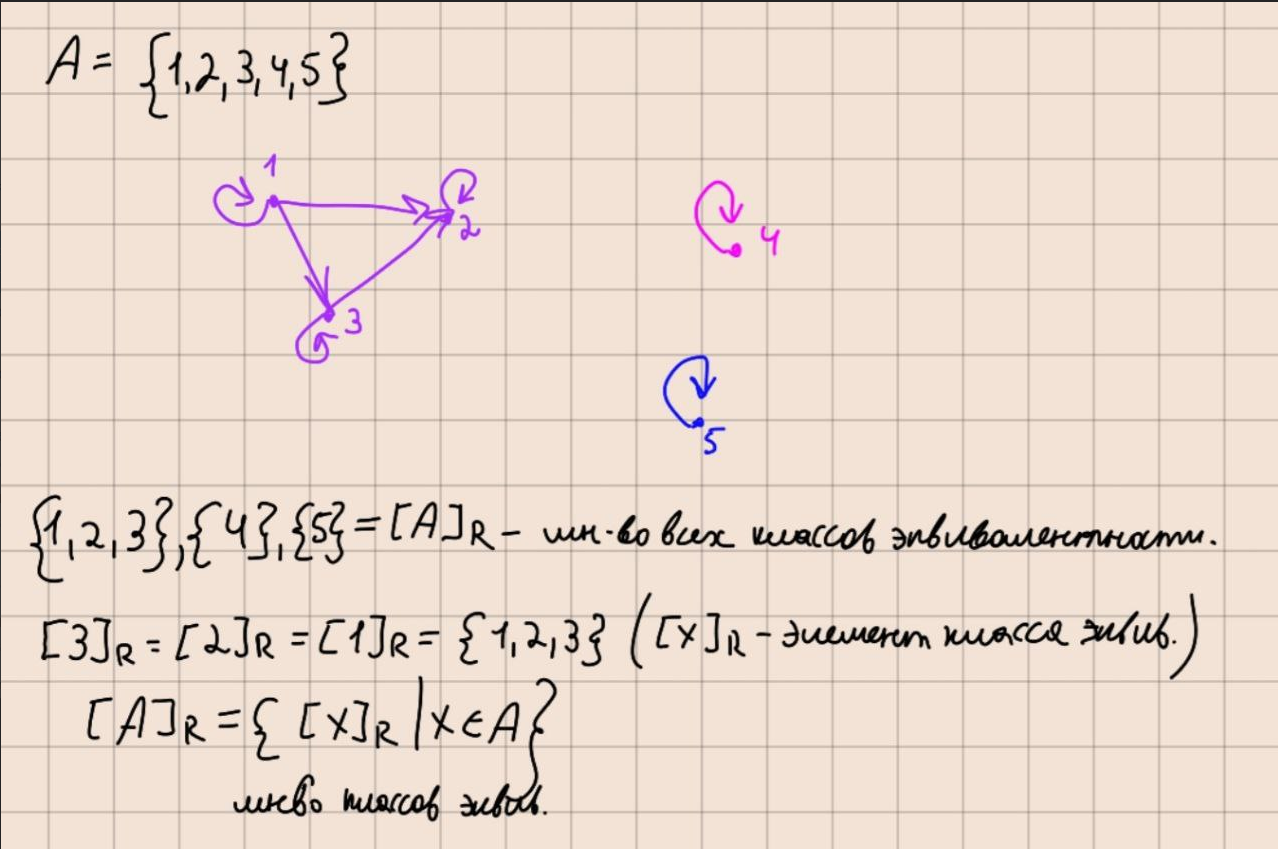 A = {1,2,3,4,5}
1
2
3
4
5
{1,2,3},{4},{5} = [A]R – мн-во всех классов эквивалентности.
[3]R = [2]R = [1]R = {1,2,3} ([x]R – элемент класса эквив.)
[A]R = { [x]R | x ∈ A}
мн-во классов эквив.